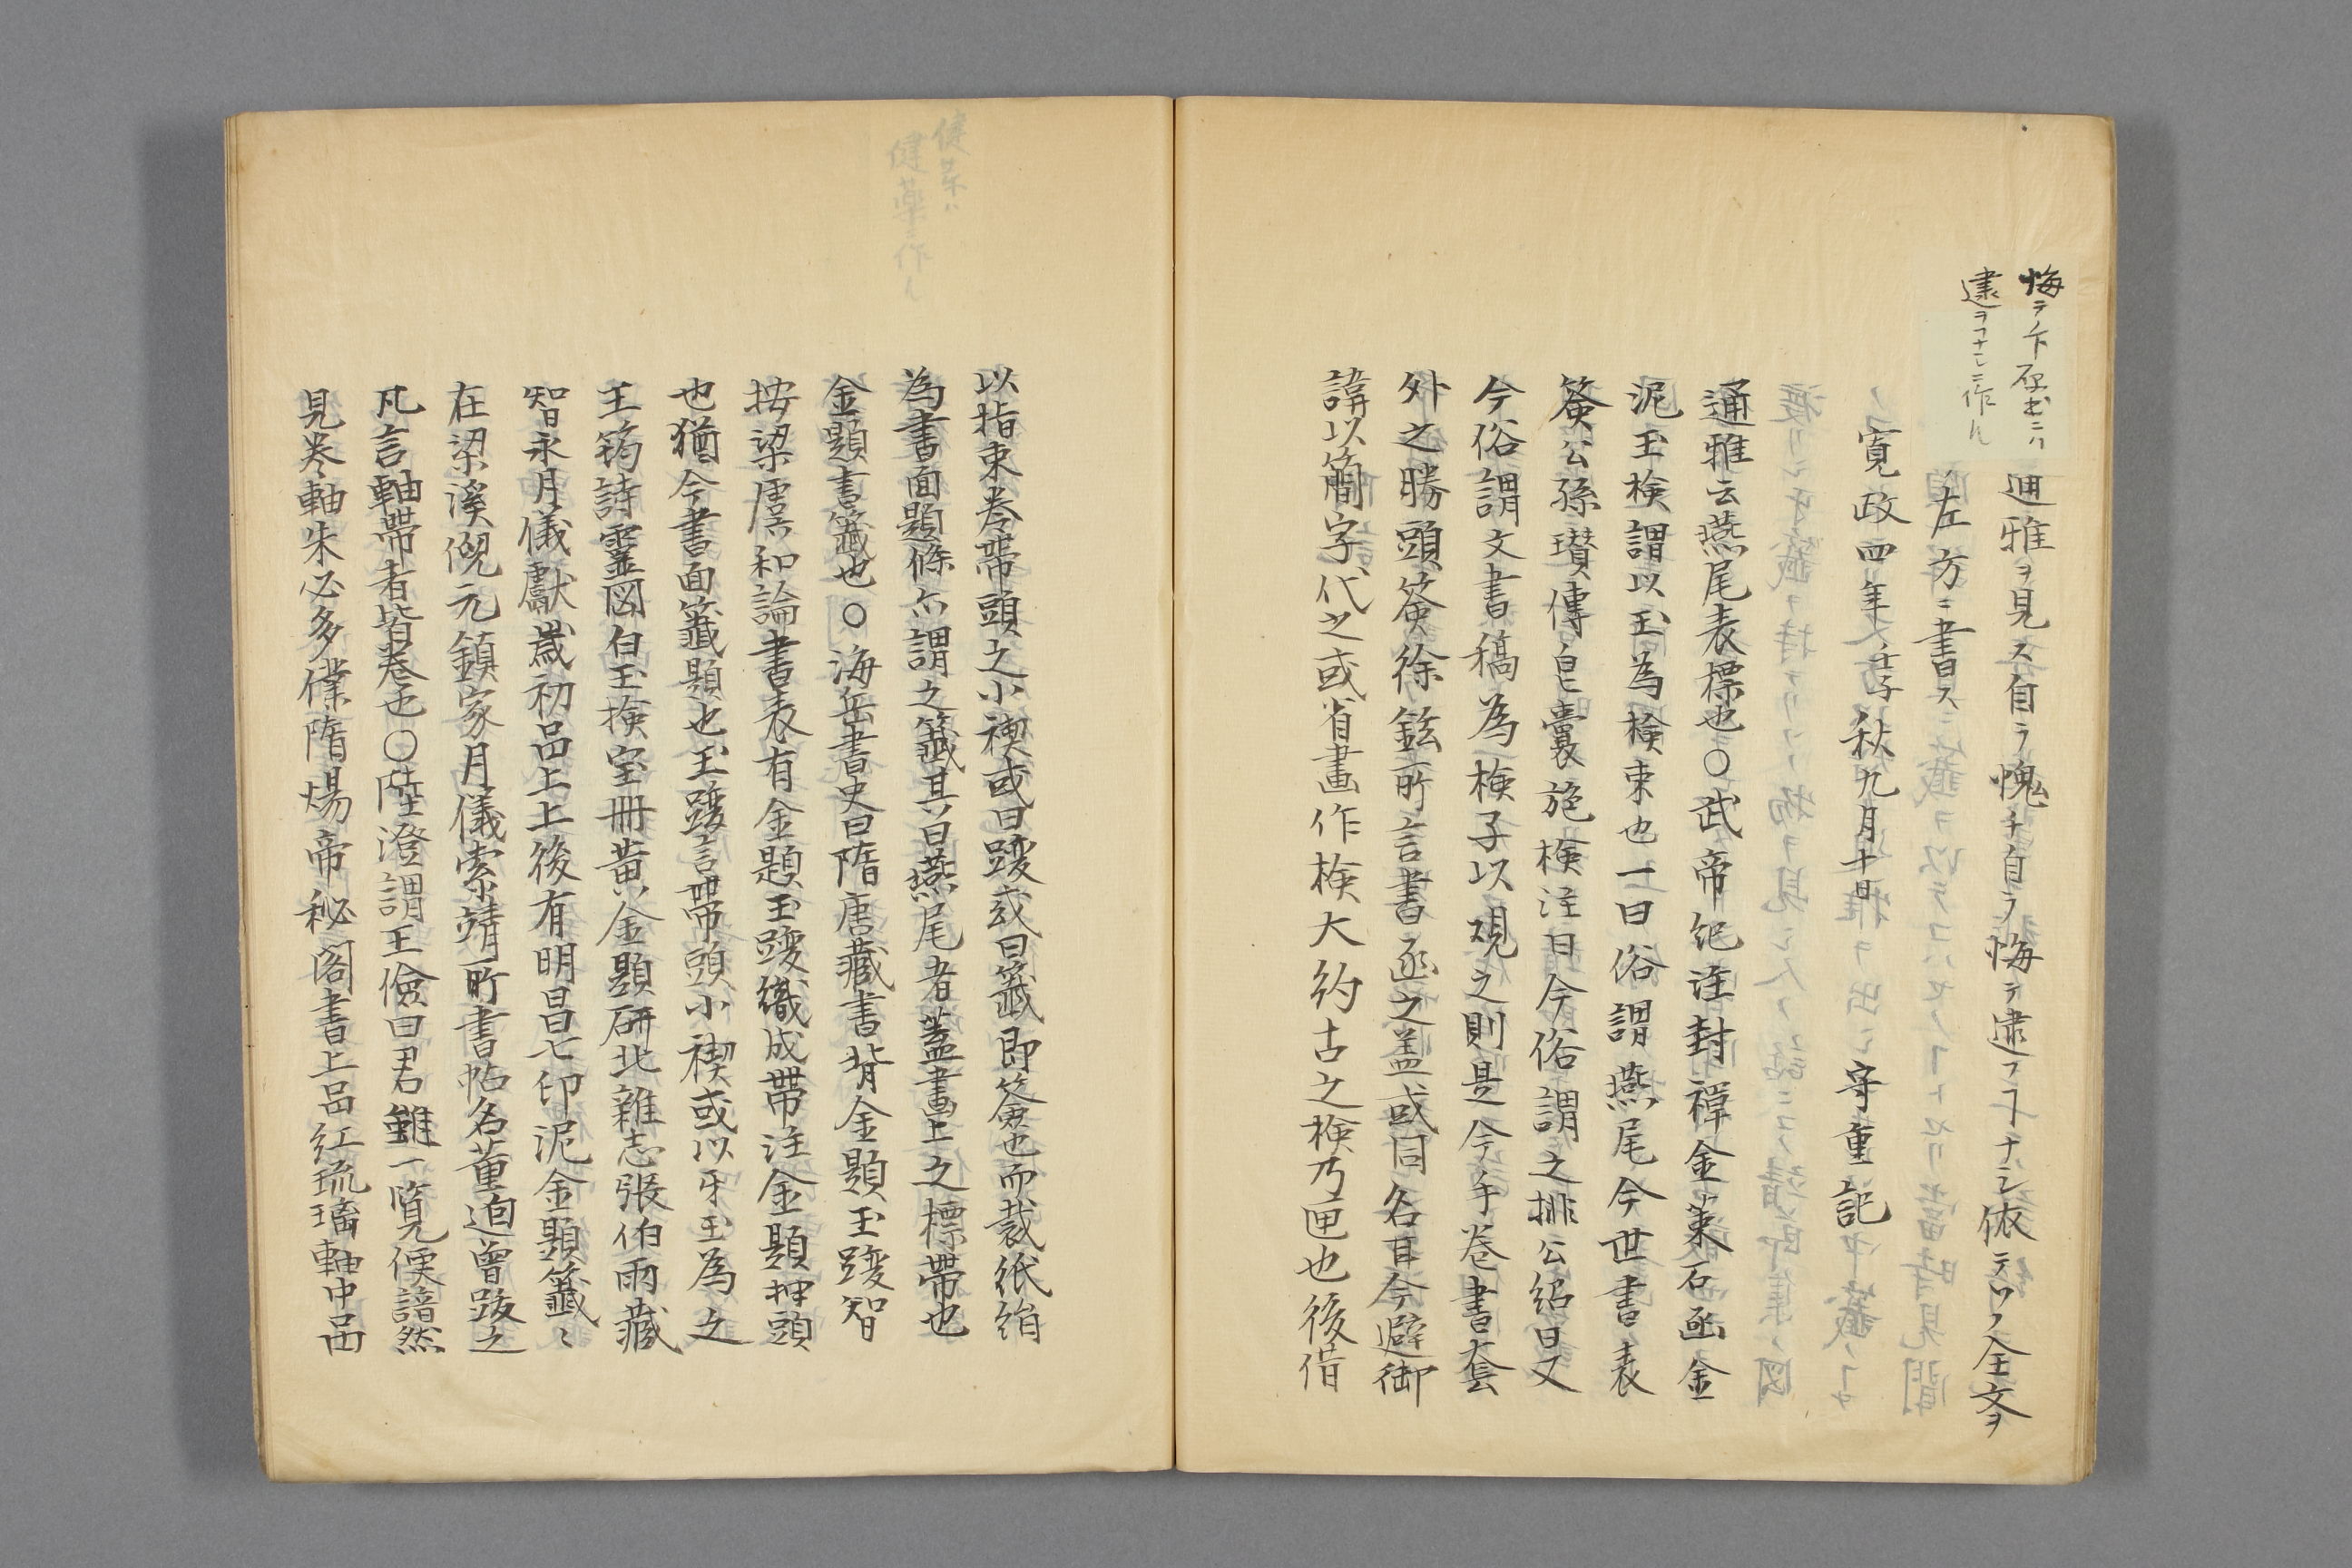 悔テノ下原書ニハ
逮フコナシニ作ル
通雅ヲ見ス自ラ愧チ自ラ悔テ逮フコナシ依テソノ全文ヲ
左方ニ書ス
寛政四年壬子秋九月十日 守重記
通雅云燕尾表標也○武帝紀注封禅金策石函金
泥玉検謂以玉為検束也一曰俗謂燕尾今世書表
簽公孫瓚傳皂嚢施検注曰今俗謂之排公紹曰又
今俗謂文書稿為検子以覌之則是今手巻書套
外之勝頭簽徐鉉所言書函之盖或同名耳今避御
諱以簡字代之或省畫作検大約古之検乃匣也後借
以指束巻帶頭之小楔或曰躞或曰籤即簽也而裁紙絹
為書面題條亦謂之籤其曰燕尾者蓋書畫上之標帶也
金題書籤也○海岳書史曰隋唐藏書皆金題玉躞智
按梁虞和論書表有金題玉躞織成帶注金題押頭
也猶今書面籤題也玉躞言帶頭小楔或以牙玉為之
王筠詩霊図白玉検宝冊黄金題研北雜志張伯雨藏
智永月儀獻歳初品上上後有明昌七印泥金題籤〻
在梁溪倪元鎮家月儀索靖所書帖名董逌曽跋之
凡言軸帶者皆巻也○陸澄謂王儉曰君雖一覧便諳然
見巻軸朱必多僕隋煬帝秘閣書上品紅琉璃軸中品